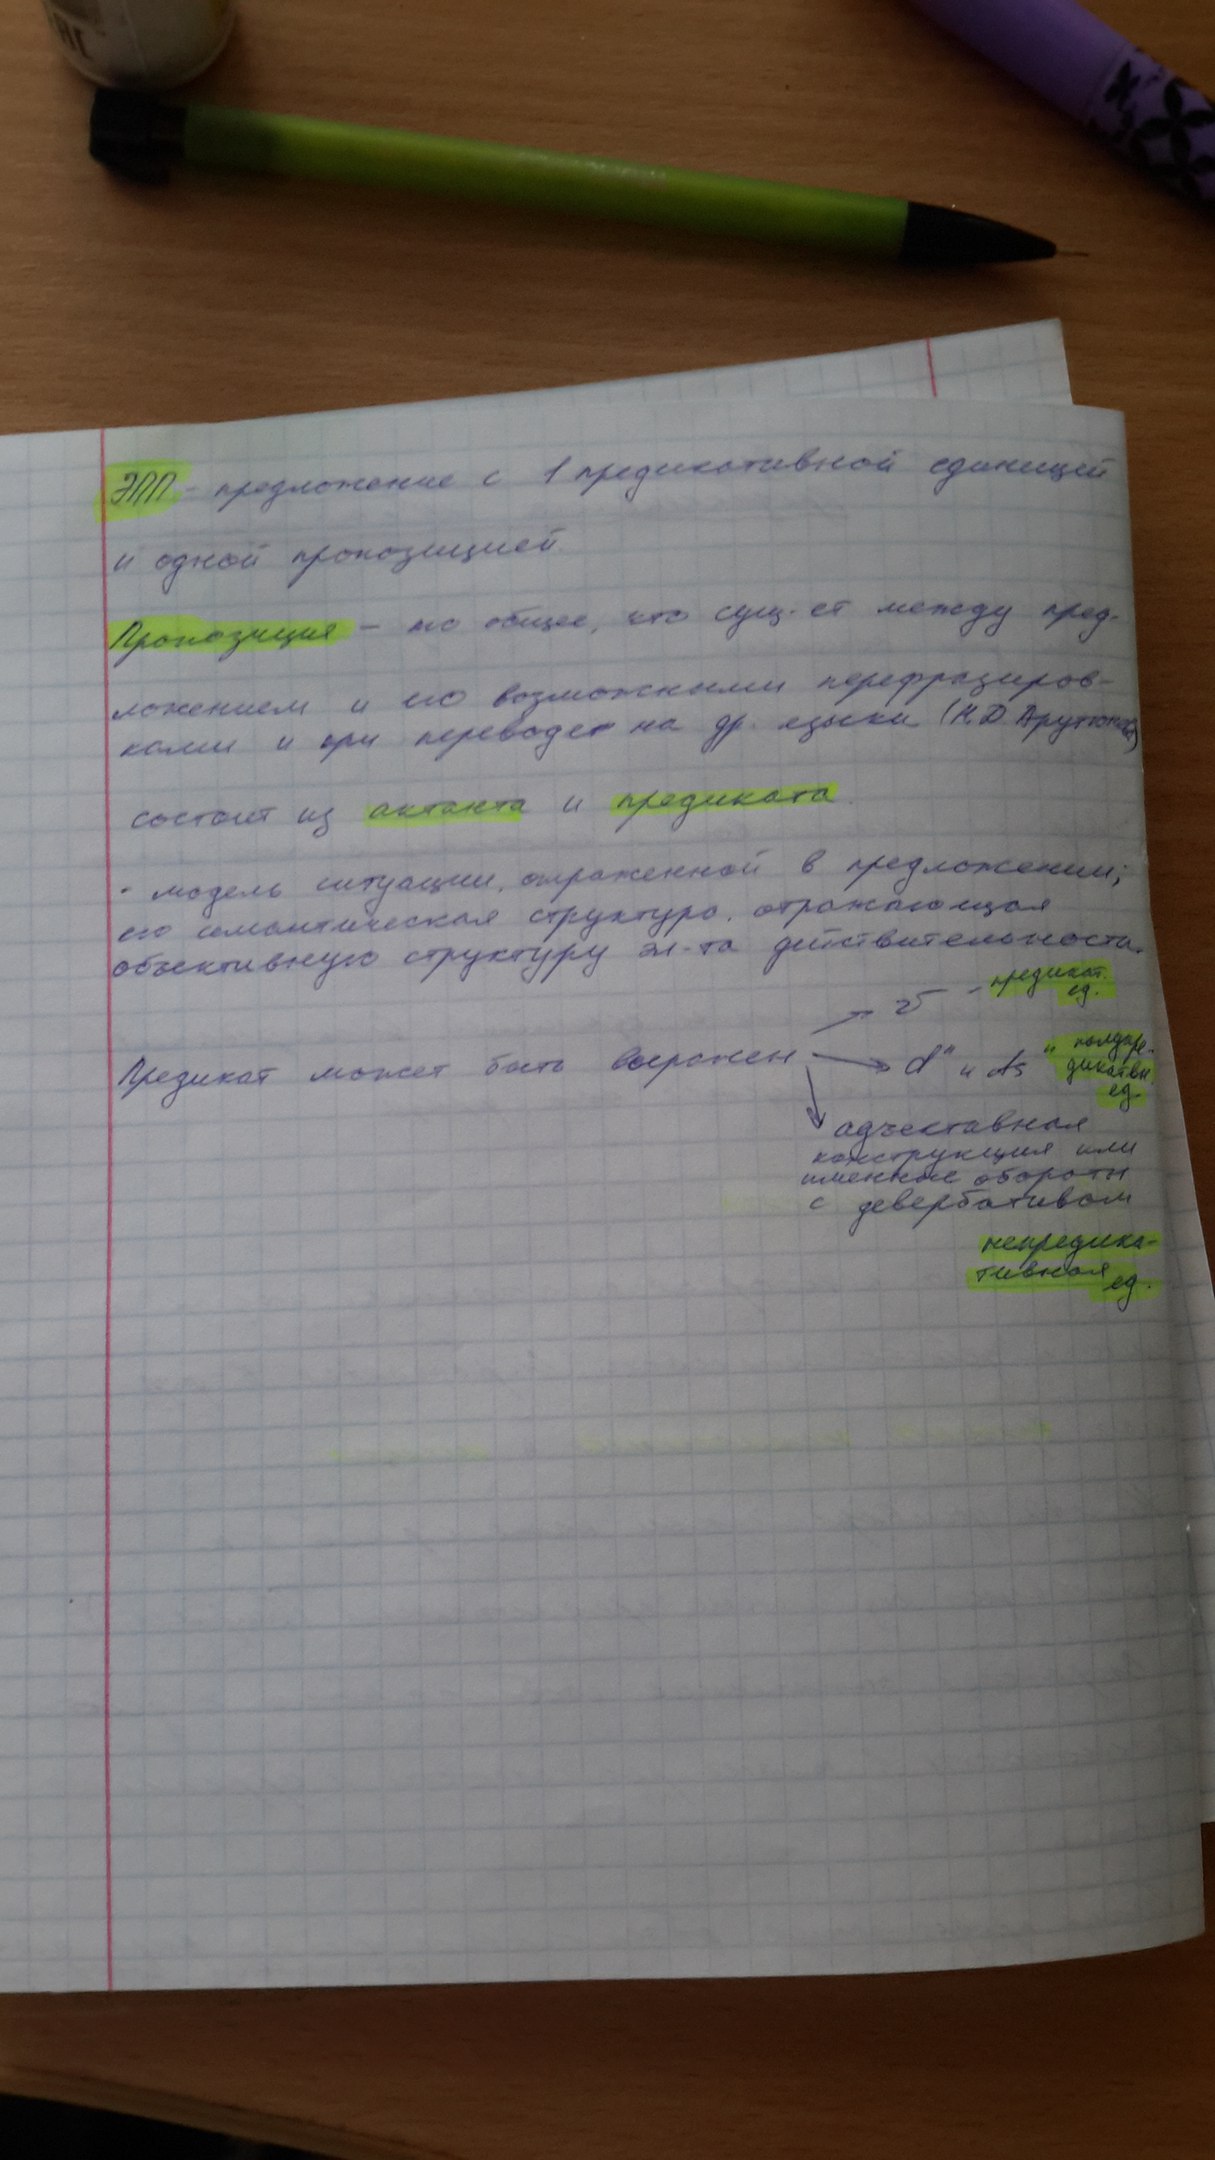 ЭПП - предложение с 1 предикативной единицей
и одной пропозицией
Пропозиция - то общее, что сущ-ет между пред-
ложением и его возможными перефразиров-
ками и при переводе на др. языки (Н.Д Арутюнова)
состоит из актанта и предиката.
- модель ситуации, отраженной в предложении;
его семантическая структура, отражающая
объективную структуру эл-та действительности.
Предикат может быть выражен
v - предикат.
ед.
d" и ds " полупре-
дикативн.
ед.
адъективная
конструкция или
именные обороты
с девербативом
непредика-
тивная ед.